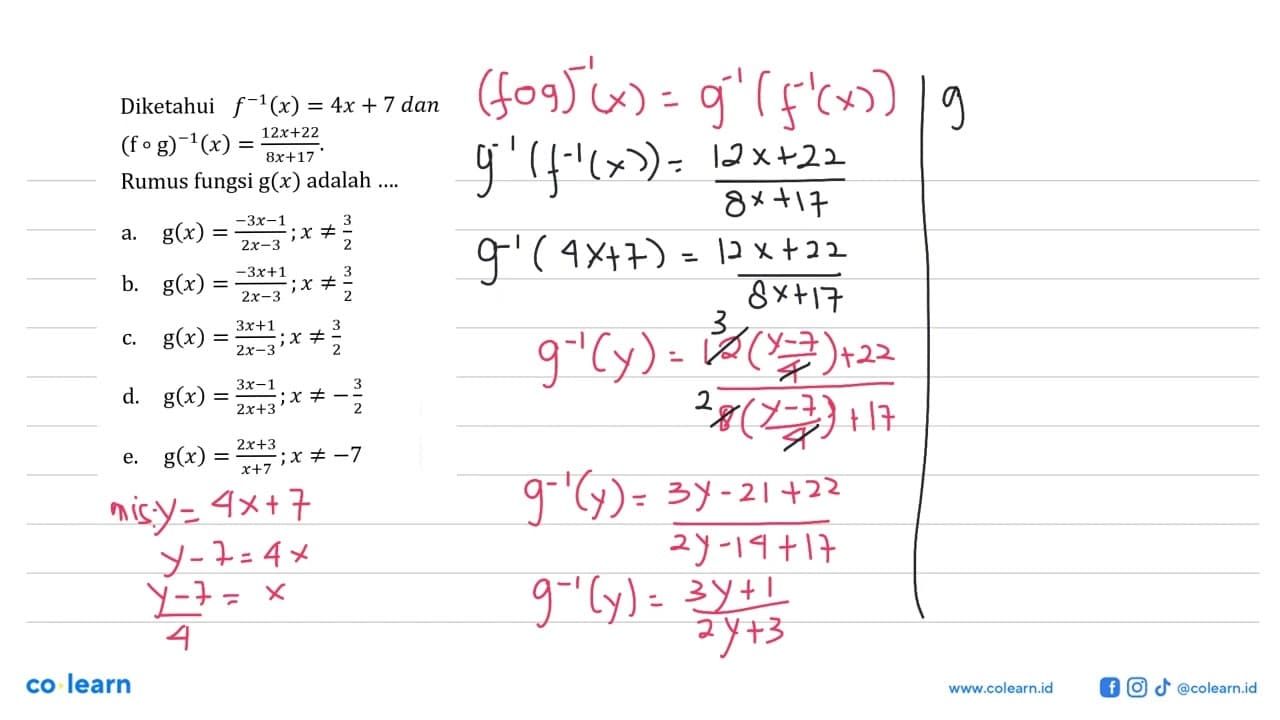 Diketahui f⁻¹(x) = 4x + 7 dan
(f ∘ g)⁻¹(x) = (12x+22)/(8x+17).
Rumus fungsi g(x) adalah ....
a. g(x) = (−3x−1)/(2x−3) ; x ≠ 3/2
b. g(x) = (−3x+1)/(2x−3) ; x ≠ 3/2
c. g(x) = (3x+1)/(2x−3) ; x ≠ 3/2
d. g(x) = (3x−1)/(2x+3) ; x ≠ −3/2
e. g(x) = (2x+3)/(x+7) ; x ≠ −7
mis: y = 4x + 7
y − 7 = 4x
(y−7)/4 = x
(fog)⁻¹(x) = g⁻¹(f⁻¹(x))
g⁻¹(f⁻¹(x)) = (12x+22)/(8x+17)
g⁻¹(4x+7) = (12x+22)/(8x+17)
g⁻¹(y) = (3 12((y−7)/4)+22)/(2 8((y−7)/4)+17)
g⁻¹(y) = (3y−21+22)/(2y−14+17)
g⁻¹(y) = (3y+1)/(2y+3)
g
co learn
www.colearn.id
@colearn.id